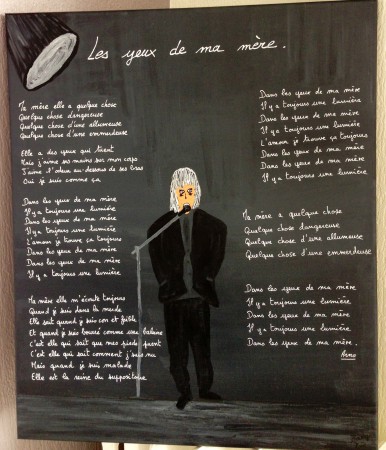 Les yeux de ma mère.
Ma mère elle a quelque chose
Quelque chose dangereuse
Quelque chose d'une allumeuse
Quelque chose d'une emmerdeuse
Elle a des yeux qui tuent
Mais j'aime ses mains sur mon corps
J'aime l'odeur au-dessous de ses bras
Oui je suis comme ça
Dans les yeux de ma mère
Il y a toujours une lumière
Dans les yeux de ma mère
Il y a toujours une lumière
L'amour je trouve ça toujours
Dans les yeux de ma mère
Dans les yeux de ma mère
Il y a toujours une lumière
Ma mère elle m'écoute toujours
Quand je suis dans la merde
Elle sait quand je suis con et faible
Et quand je suis bourré comme une baleine
C'est elle qui sait que mes pieds puent
C'est elle qui sait comment j'suis nu
Mais quand je suis malade
Elle est la reine du suppositoire
Dans les yeux de ma mère
Il y a toujours une lumière
Dans les yeux de ma mère
Il y a toujours une lumière
L'amour je trouve ça toujours
Dans les yeux de ma mère
Dans les yeux de ma mère
Il y a toujours une lumière
Ma mère a quelque chose
Quelque chose dangereuse
Quelque chose d'une allumeuse
Quelque chose d'une emmerdeuse
Dans les yeux de ma mère
Il y a toujours une lumière
Dans les yeux de ma mère
Il y a toujours une lumière
Dans les yeux de ma mère.
Arno